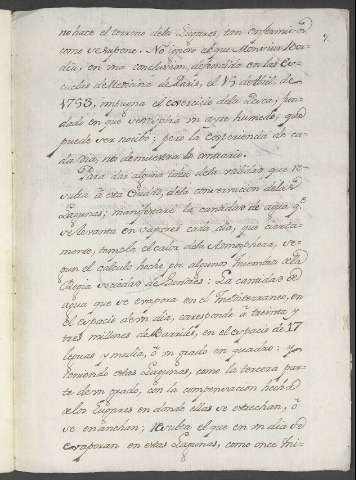 no hace el terreno de los Lugares, tan enfermizo
como se supone. No ignoro el que Monsieur
en una conclusion, defendida en las Es-
cuelas de Medicina de Paris, el 13 de Abril de
1753, impugna el exercicio de la Pesca, fun-
dado en que se respira un ayre humedo, que
puede ser nocibo; pero la experiencia de ca-
da dia, nos demuestra lo contrario.
Para dar alguna idea de la utilidad que re-
sulta à esta Ciudad, de la conservacion de las
Lagunas; manifestaré la cantidad de agua qe.
se levanta en vapores cada dia, que cierta-
mente, templa el calor de la Atmosphera, se-
gun el calculo hecho por algunos Miembros de la
Regia Sociedad de Londres: La cantidad de
agua que se evapora en el Mediterraneo, en
el espacio de un dia, corresponde à treinta y
tres millones de Barriles, en el espacio de 17
leguas y media, ò un grado en quadro: y
teniendo estas Lagunas, como la tercera par-
te de un grado, con la compensacion hecha
de los Lugares en donde ellas se estrechan, ò
se ensanchan; resulta el que en un dia se
evaporan en estas Lagunas, como once Mi-